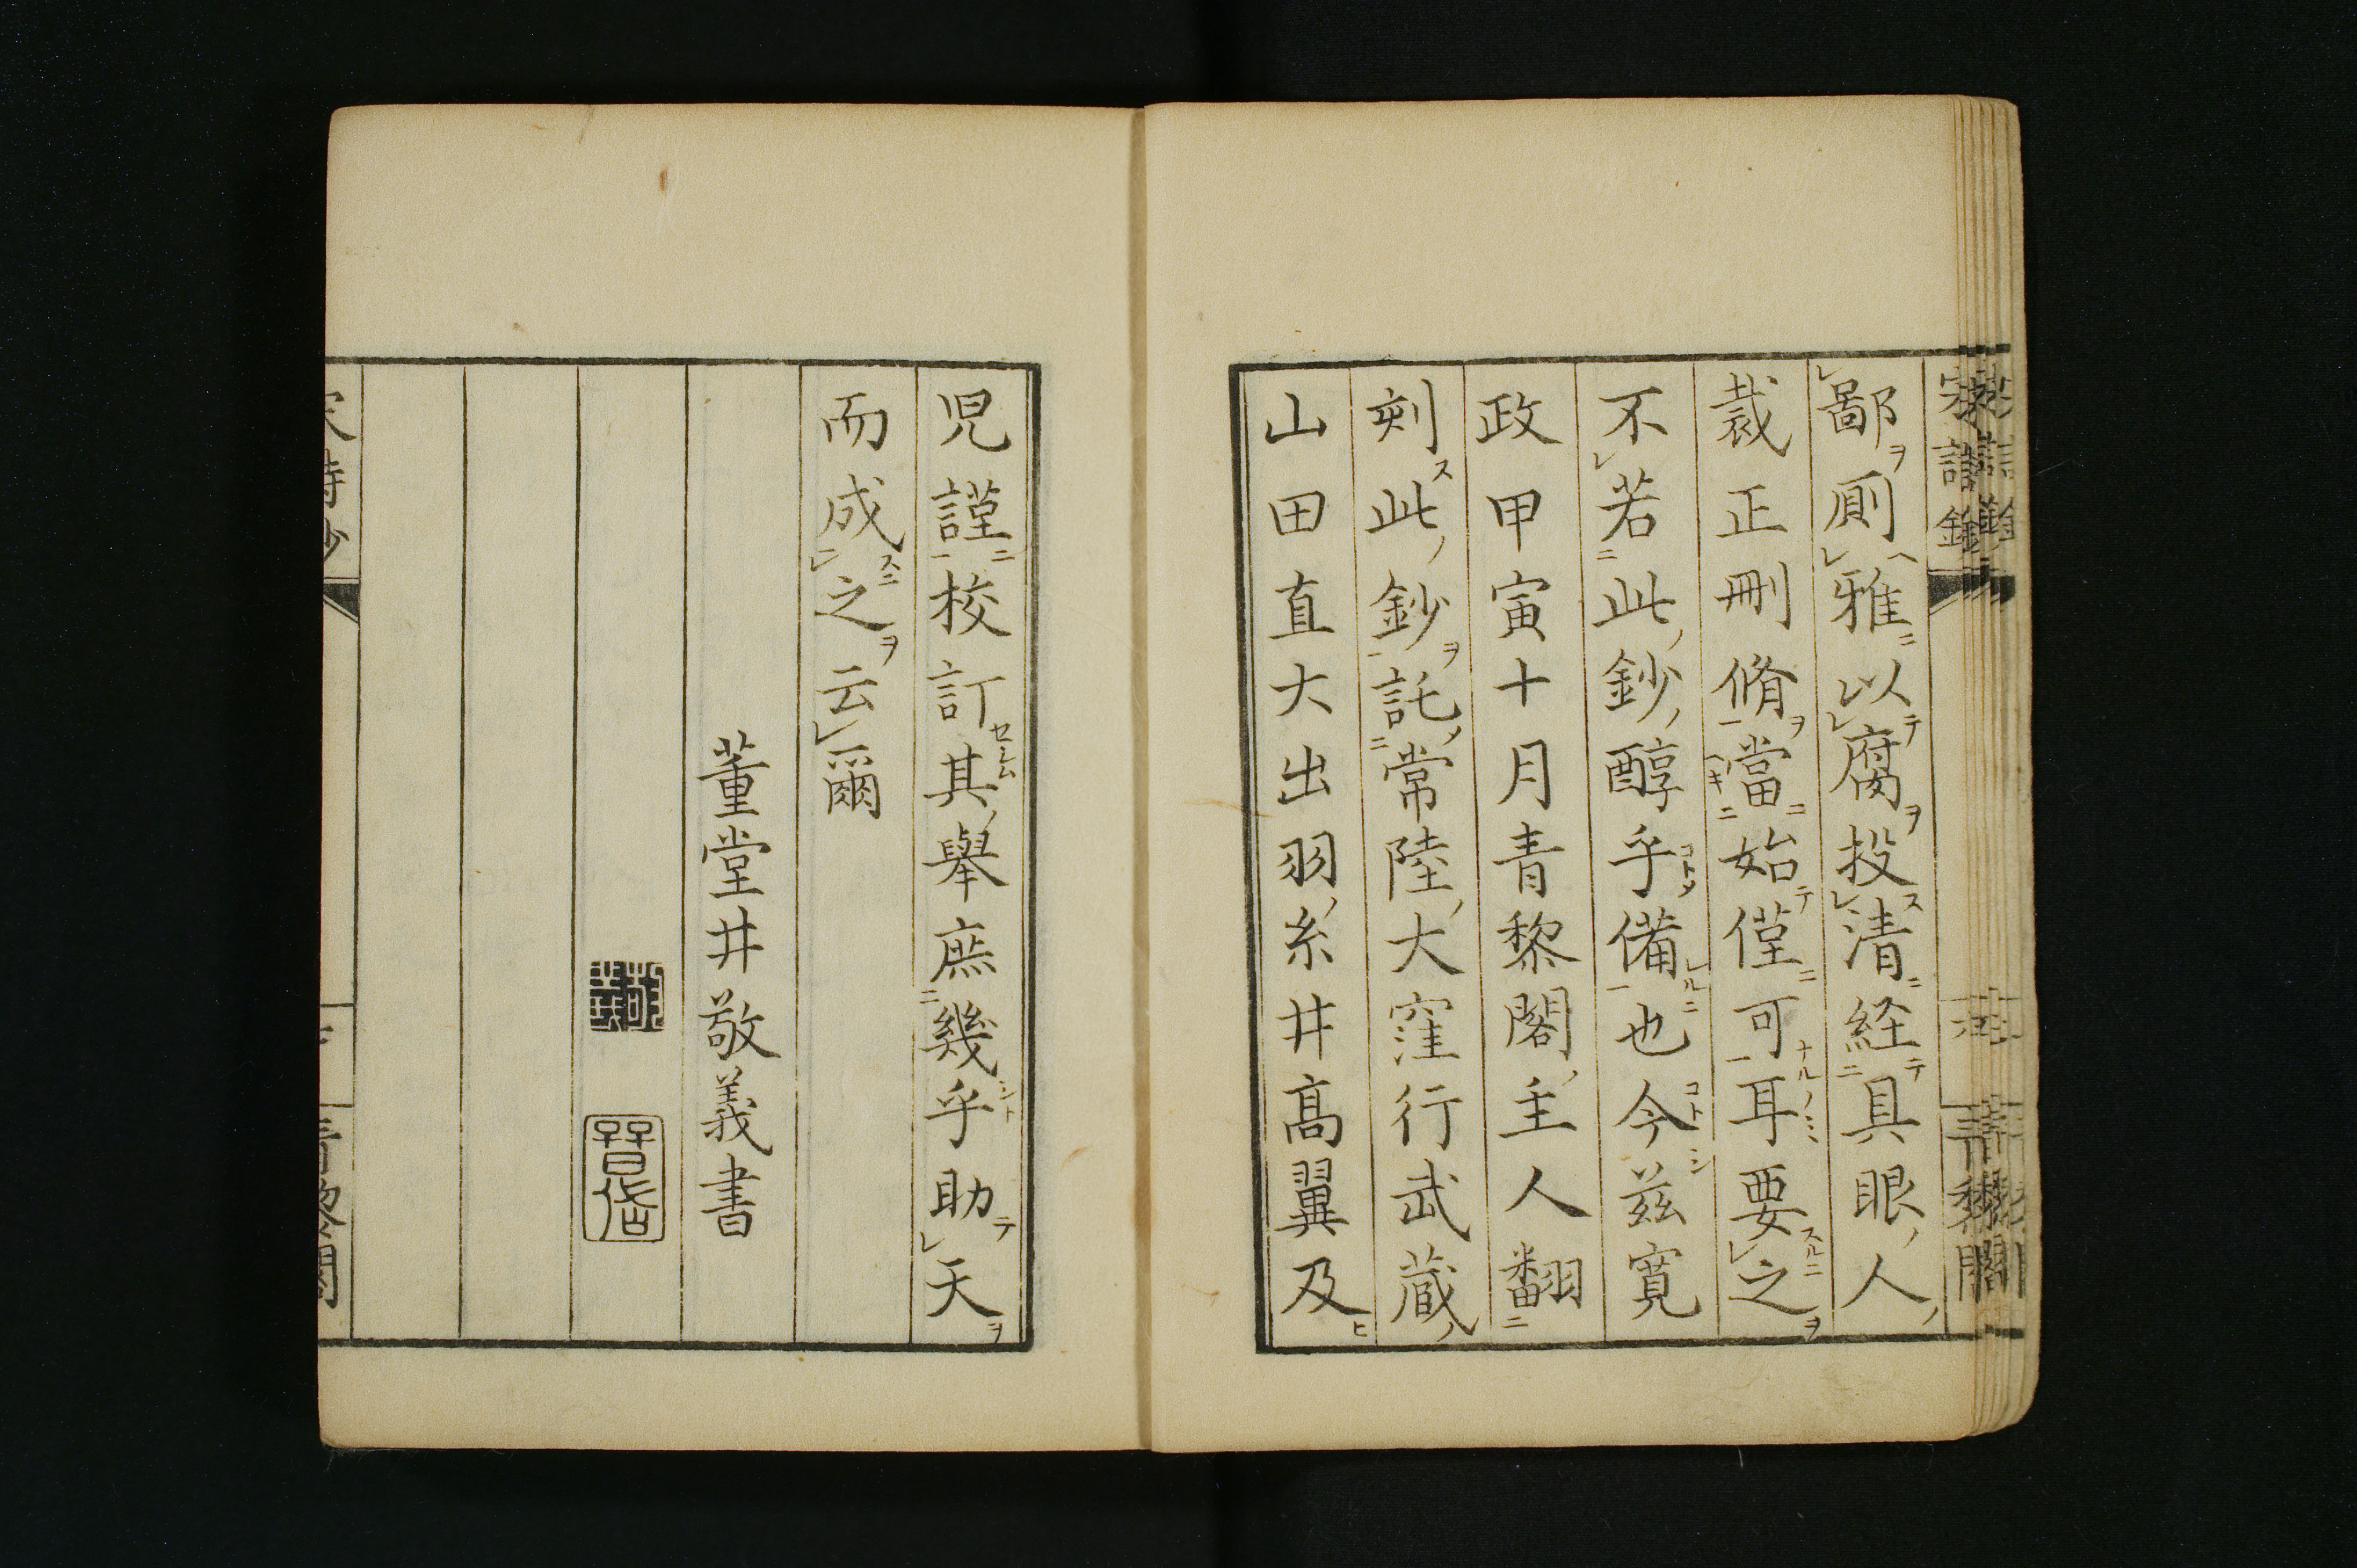 鄙厠雅以腐投清経具眼人
裁正刪脩當始僅可耳要之
不若此鈔醇乎備也今茲寛
政甲寅十月青黎閣主人翻
刻此鈔託常陸大窪行武蔵
山田直大出羽糸井高翼及
児謹校訂其舉庶幾乎助天
而成之云爾
董堂井敬義書